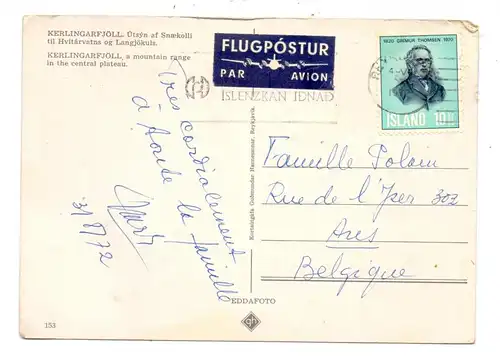 KERLINGARFJÖLL. Útsýn af Snækolli
til Hvítárvatns og Langjökuls.
KERLINGARFJÖLL, a mountain range
in the central plateau.
FLUGPÓSTUR
PAR AVION
ÍSLENZKAN IÐNAÐ
1820 GRÍMUR THOMSEN 1870
ÍSLAND 10
Très cordialement
à toute la famille
31/8/72
Famille Polain
Rue de l'Yser 302
Ans
Belgique
EDDAFOTO
153